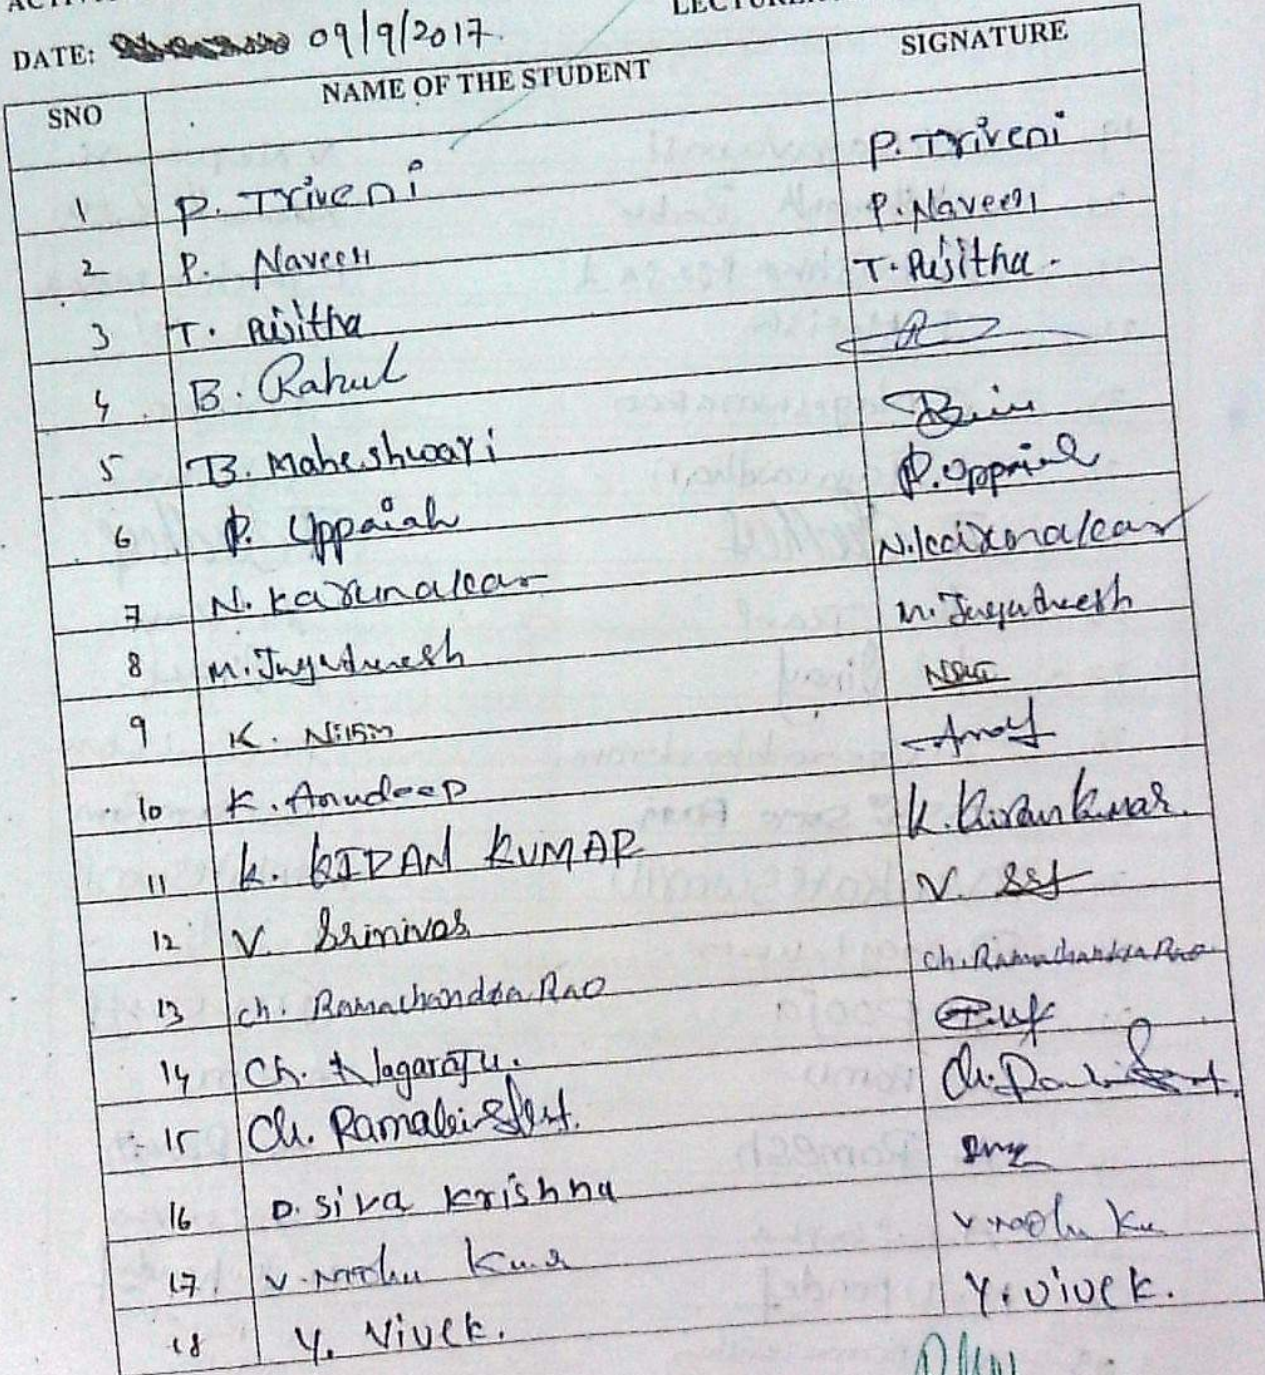 DATE: 09/9/2017
SNO NAME OF THE STUDENT SIGNATURE
1 P. Triveni P. Triveni
2 P. Naveen P. Naveen
3 T. Rijitha T. Rijitha.
4 B. Rahul
5 B. Maheshwari
6 P. Uppaiah P. Uppaiah
7 N. Karunakar N. Karunakar
8 M. Jagadheesh M. Jagadheesh
9 K. Nitin
10 K. Anudeep
11 K. KIRAN KUMAR K. Kirankumar.
12 V. Srinivas V.
13 Ch. Ramachandra Rao Ch. Ramachandra Rao
14 Ch. Nagaraju.
15 Ch. Ch.
16 D. Siva Krishna
17 V. V.
18 Y. Vivek. Y. Vivek.